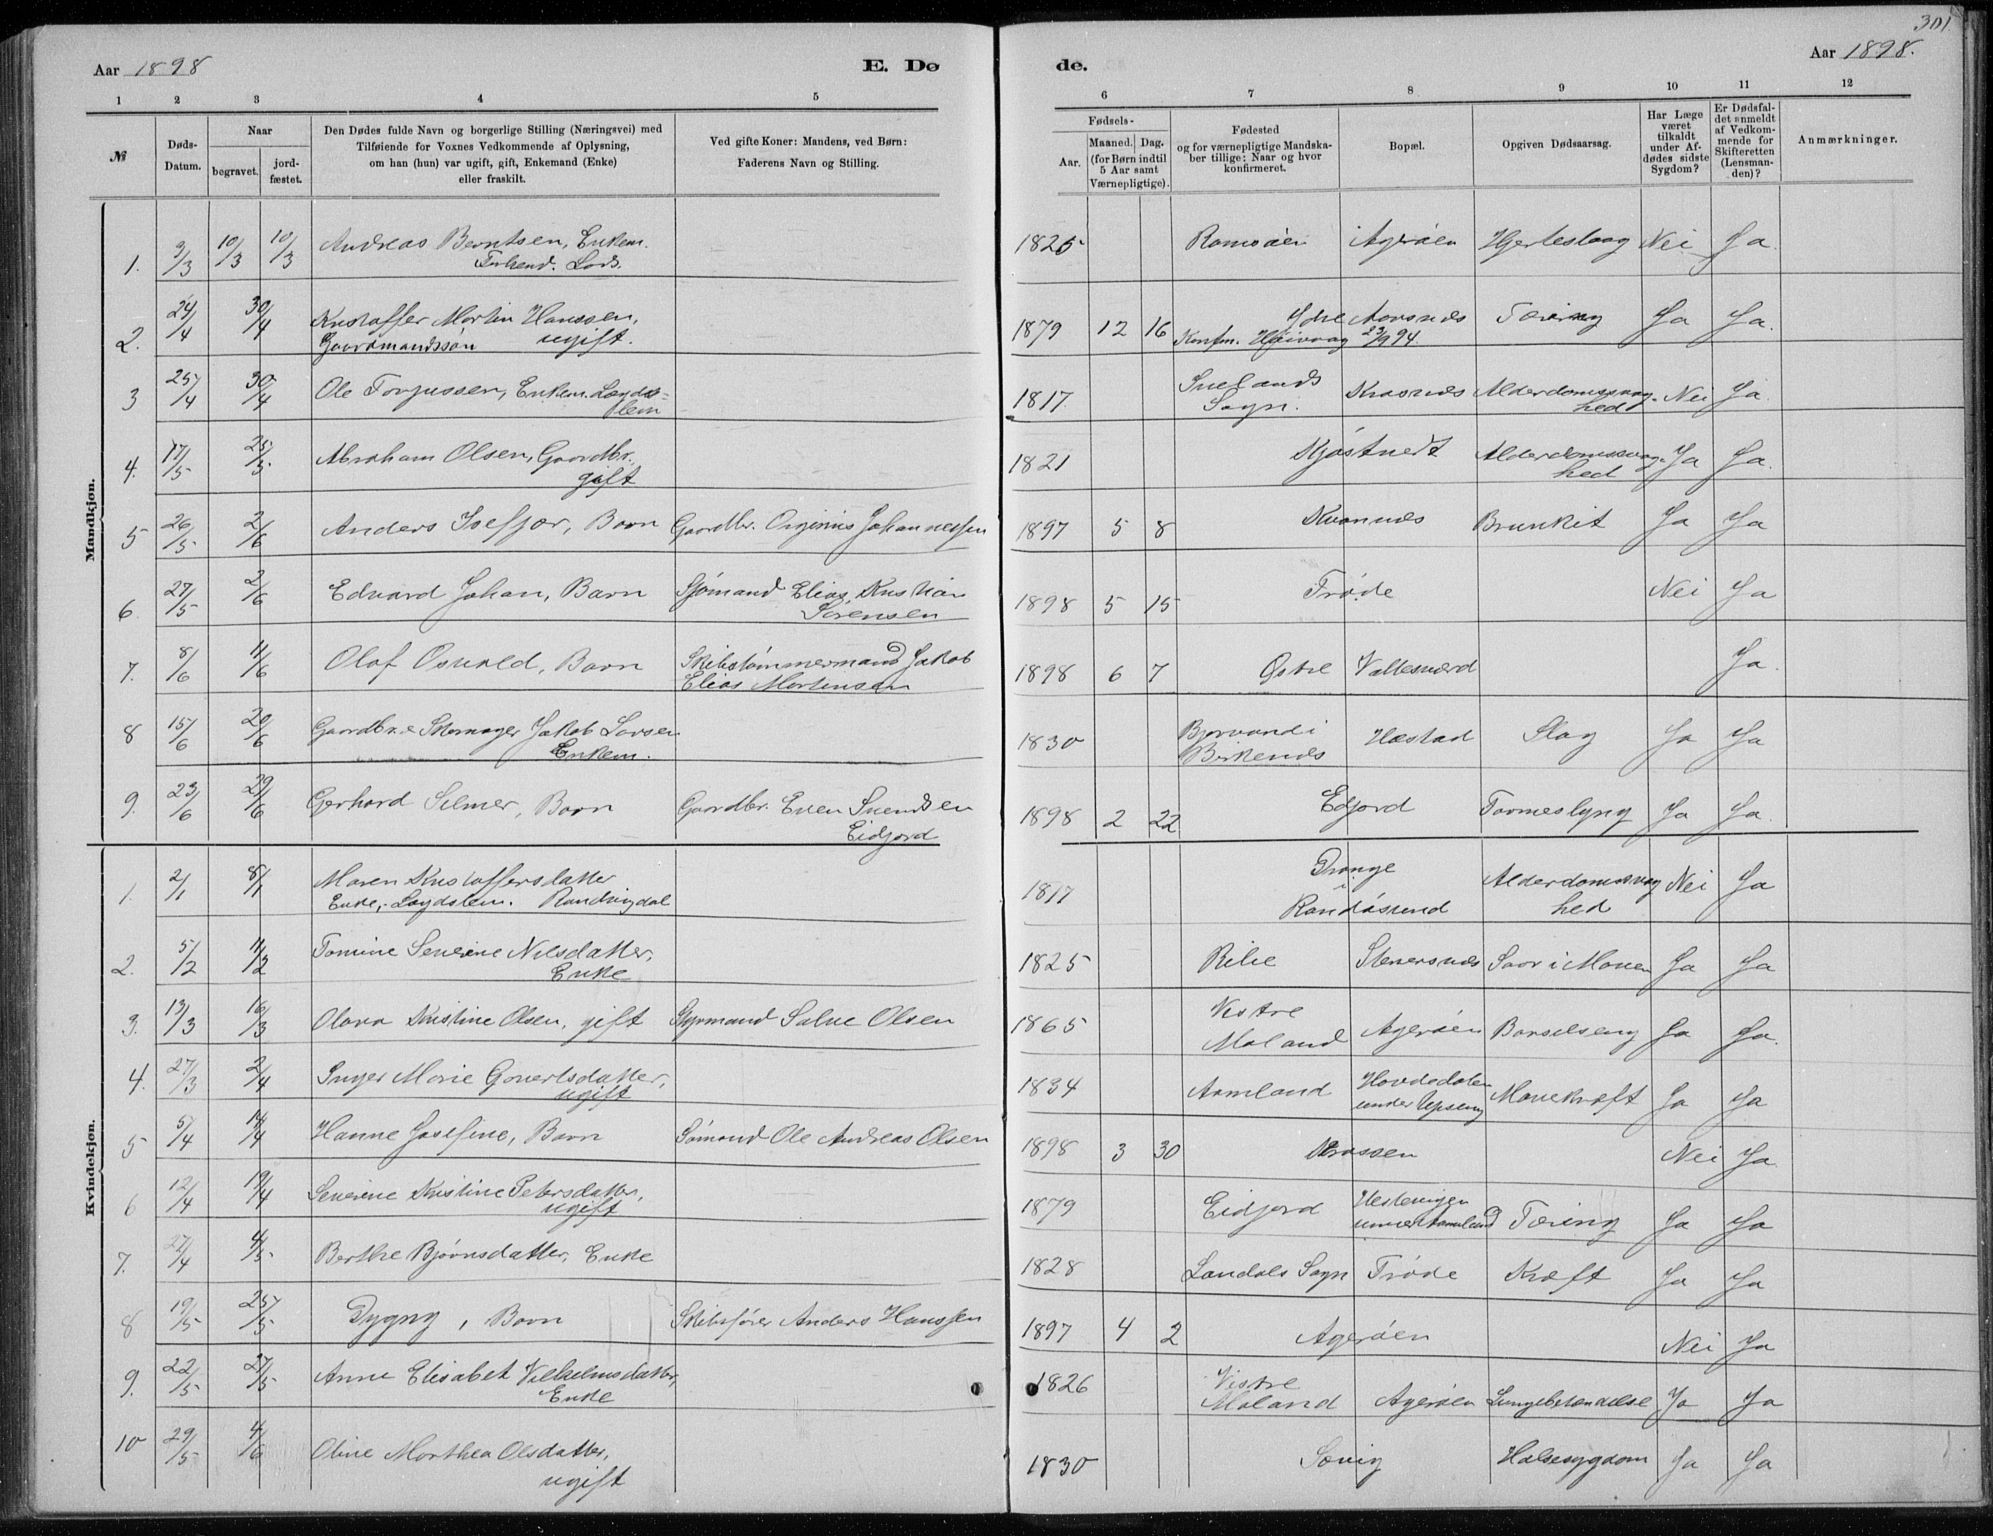 301
Aar 1898
E. Dø
de.
Aar 1898.
1 2 3 4 5 6 7 8 9 10 11 12
№
Døds-Datum.
Naar
begravet.
jord-fæstet.
Den Dødes fulde Navn og borgerlige Stilling (Næringsvei) med
Tilføiende for Voxnes Vedkommende af Oplysning,
om han (hun) var ugift, gift, Enkemand (Enke)
eller fraskilt.
Ved gifte Koner: Mandens, ved Børn:
Faderens Navn og Stilling.
Fødsels-
Aar.
Maaned. Dag.
(for Børn indtil
5 Aar samt
Værnepligtige).
Fødested
og for værnepligtige Mandska-
ber tillige: Naar og hvor
konfirmeret.
Bopæl.
Opgiven Dødsaarsag.
Har Læge
været
tilkaldt
under Af-
dødes sidste
Sygdom?
Er Dødsfal-
det anmeldt
af Vedkom-
mende for
Skifteretten
(Lensman-
den)?
Anmærkninger.
Mandkjøn.
1. 9/3 10/3 10/3 Andreas Berntsen, Enkem. 1825 Ramsøen Agerøen Hjerteslag Nei Ja.
Forhend. Lods.
2. 24/4 30/4 Kristoffer Martin Hanssen, 1879 12 16 Ydre Aarsnes Tæring Ja Ja.
Gaardmandssøn ugift. Konfm. Høivaag 23/9 94.
3 25/4 30/4 Ole Torjussen, Enkem. Lægds- 1817 Suelands Krasnes Alderdomssvag- Nei Ja.
lem Sogn. hed
4. 17/5 25/5 Abraham Olsen, Gaardbr. 1821 Kjøstvedt Alderdomssvag- Ja Ja.
gift hed
5 26/5 2/6 Anders Isefjær, Barn Gaardbr. Orginius Johannessen 1897 5 8 Kvannes Brunkit Ja Ja
6. 27/5 2/6 Edvard Johan, Barn Sjømand Elias Kristian 1898 5 15 Trøde Nei Ja
Sørensen
7. 8/6 11/6 Olaf Osvald, Barn Skibstømmermand Jakob 1898 6 7 Østre Vallesværd Ja.
Elias Mortensen
8 15/6 20/6 Gaardbr. e Skomager Jakob Larsen 1830 Bjorvand i Hæstad Slag Ja Ja
Enkem. Birkenes
9. 23/6 29/6 Gerhard Selmer, Barn Gaardbr. Even Svendsen 1898 2 22 Edjord Tarmeslyng Ja Ja.
Eidjord
Kvindekjøn.
1. 2/1 8/1 Maren Kristoffersdatter 1817 Drange Alderdomssvag Nei Ja
Enke, Lægdslem. Randvigdal i Randøsund hed
2. 5/2 11/2 Tomine Severine Nilsdatter, 1825 Ribe Stenersnes Saar i Maven Ja Ja
Enke
3. 13/3 16/3 Olava Kristine Olsen, gift Styrmand Salve Olsen 1865 Vestre Agerøen Barselseng Ja Ja.
Moland
4. 27/3 2/4 Inger Marie Govertsdatter, 1834 Aamland Hovdedalen Mavekræft Ja Ja
ugift under Ulpseng
5 5/4 14/4 Hanne Josefine, Barn Sømand Ole Andreas Olsen 1898 3 30 Krossen Nei Ja
6 12/4 19/4 Severine Kristine Petersdatter, 1879 Eidjord Tæring Ja Ja
ugift
7. 27/4 4/5 Berthe Bjørnsdatter, Enke 1828 Landals Sogn Trøde Kræft Ja Ja
8 19/5 25/5 Dygny, Barn Skibsfører Anders Hanssen 1897 4 2 Agerøen Nei Ja
9. 22/5 27/5 Anne Elisabet Vilhelmsdatter, 1826 Vestre Agerøen Lungebetændelse Ja Ja
Enke Moland
10 29/5 4/6 Oline Marthea Olsdatter, 1830 Sævig Halsesygdom Ja Ja
ugift